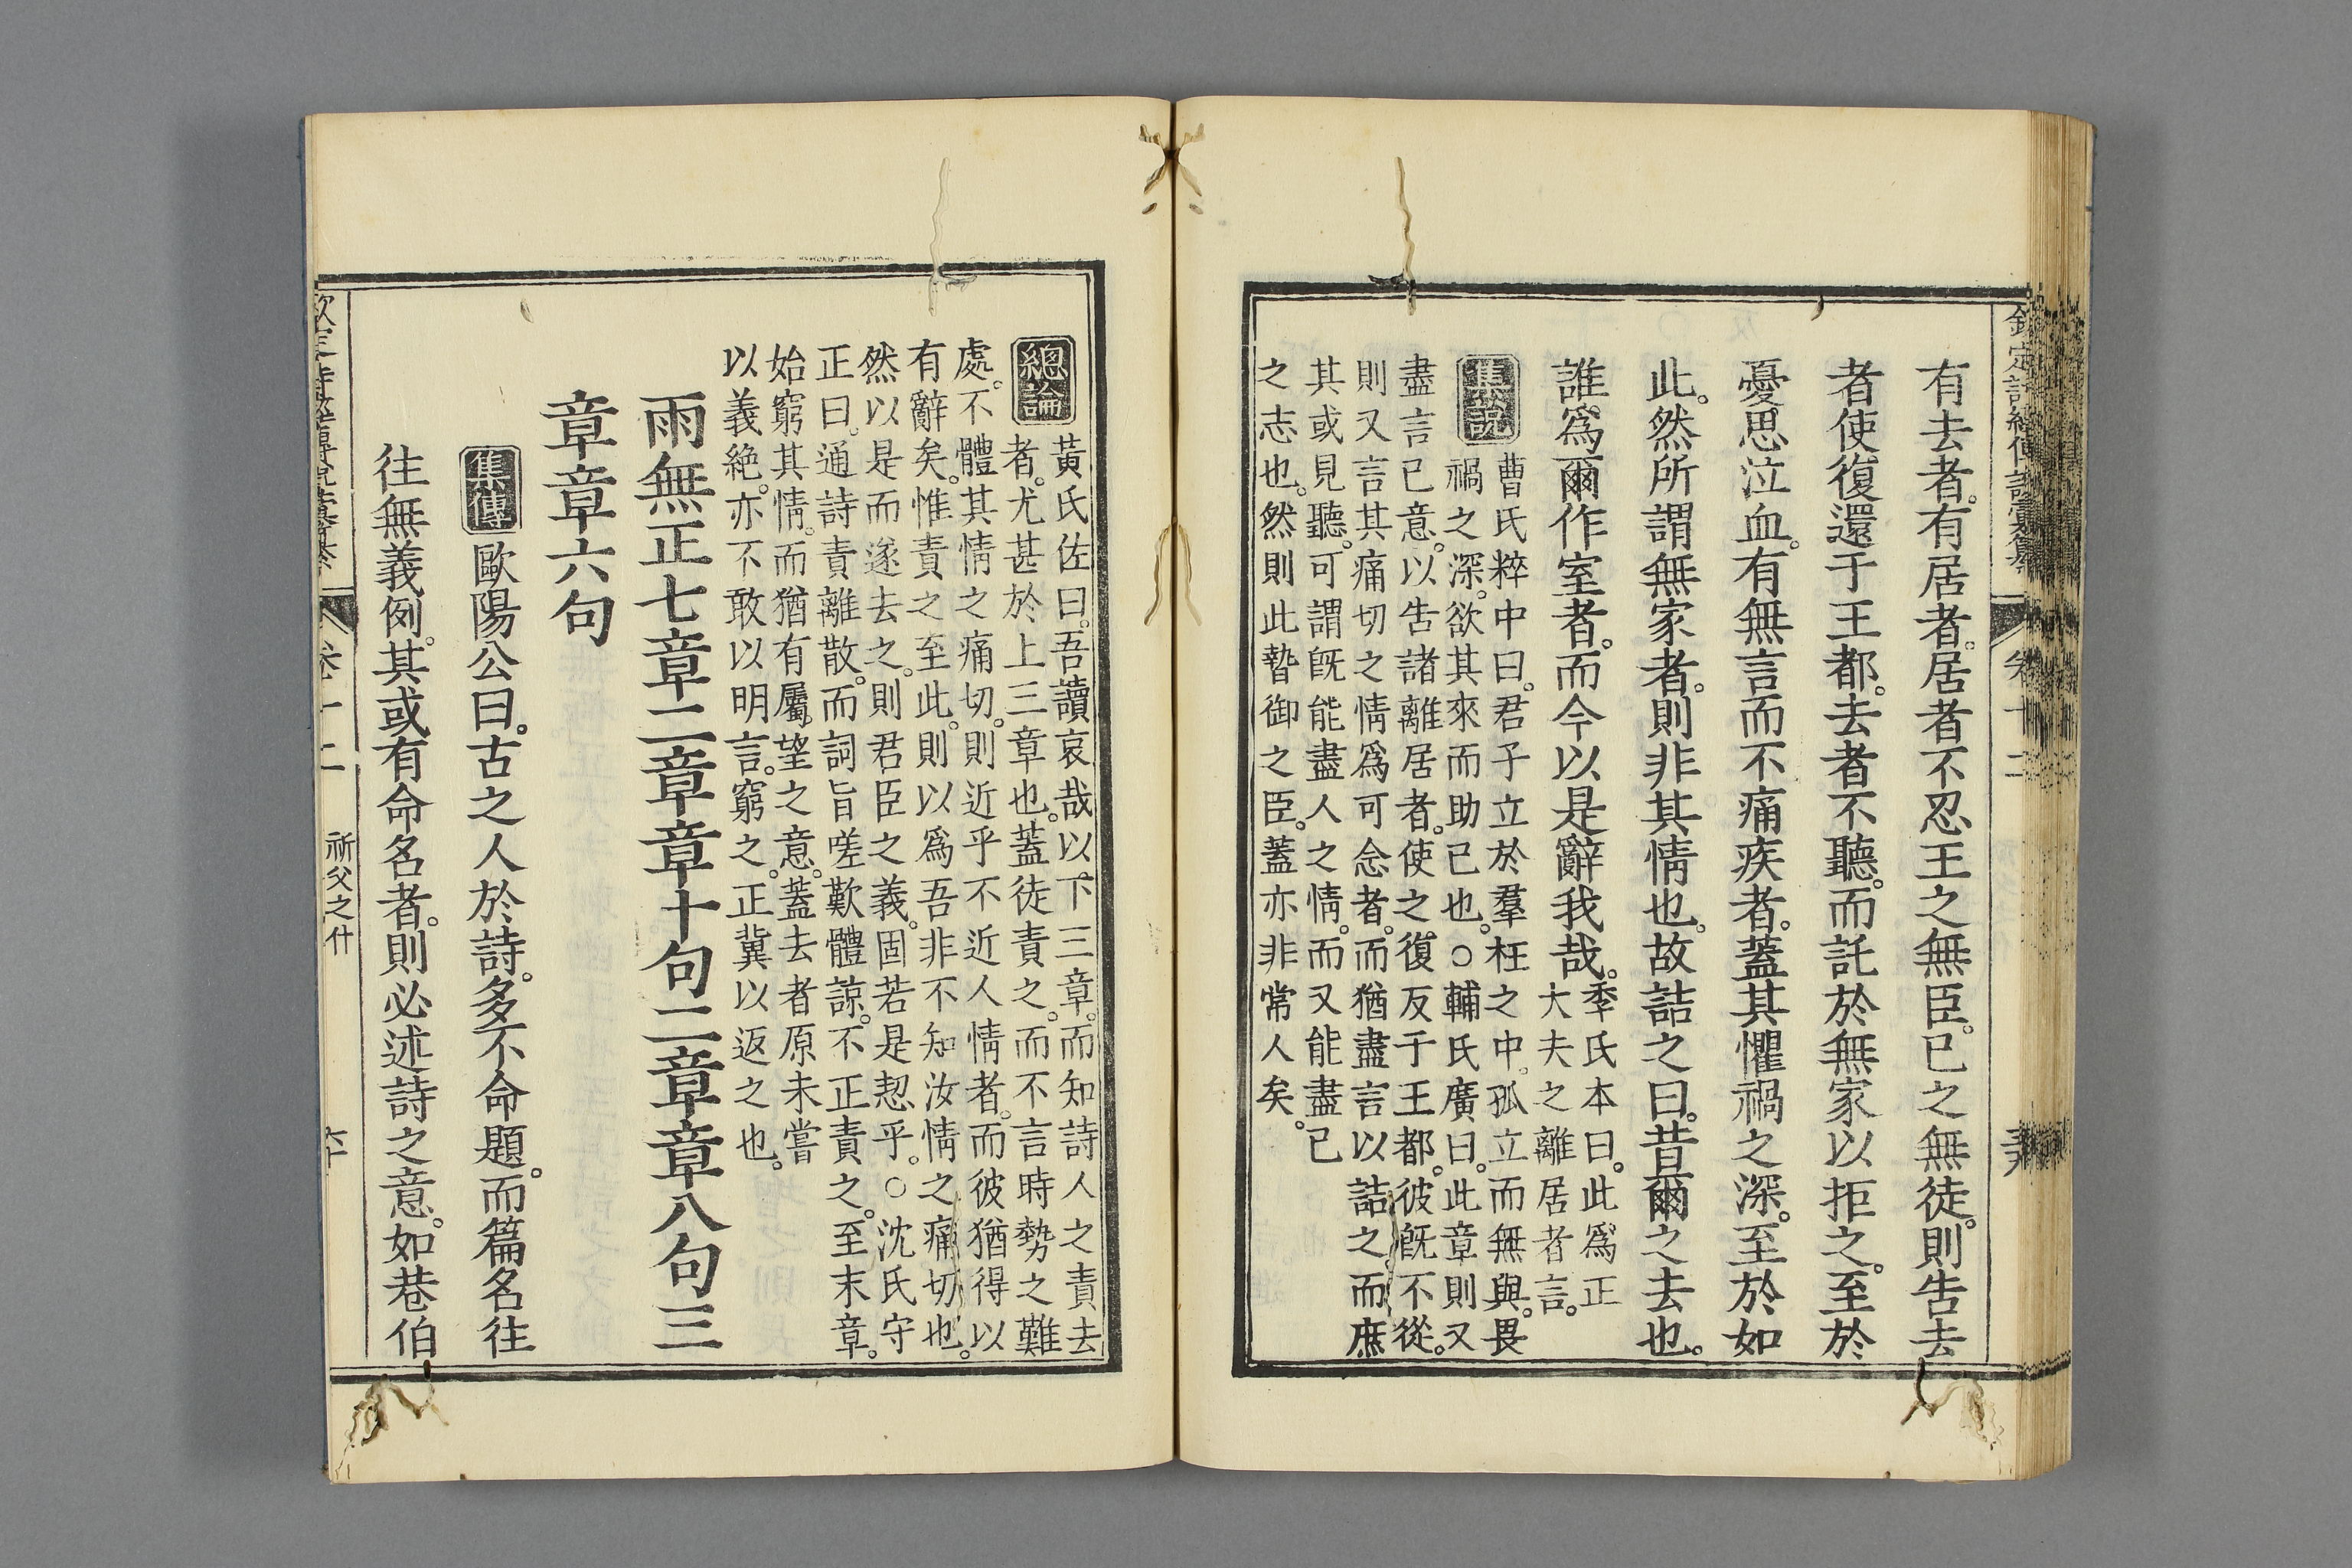 欽定詩經傳說彙纂
卷十二
有去者。有居者。居者不忍王之無臣。已之無徒。則告去
者使復還于王都。去者不聽。而託於無家以拒之。至於
憂思泣血。有無言而不痛疾者。蓋其懼禍之深。至於如
此。然所謂無家者。則非其情也。故詰之曰。昔爾之去也。
誰爲爾作室者。而今以是辭我哉。
季氏本曰。此爲正
大夫之離居者言。
集說
曹氏粹中曰。君子立於羣枉之中。孤立而無與。畏
禍之深。欲其來而助已也。○輔氏廣曰。此章則又
盡言已意。以告諸離居者。使之復反于王都。彼旣不從。
則又言其痛切之情爲可念者。而猶盡言以詰之。而庶
其或見聽。可謂旣能盡人之情。而又能盡已
之志也。然則此暬御之臣。蓋亦非常人矣。
總論
黃氏佐曰。吾讀哀哉以下三章。而知詩人之責去
者。尤甚於上三章也。蓋徒責之。而不言時勢之難
處。不體其情之痛切。則近乎不近人情者。而彼猶得以
有辭矣。惟責之至此。則以爲吾非不知汝情之痛切也。
然以是而遂去之。則君臣之義。固若是恝乎。○沈氏守
正曰。通詩責離散。而詞旨嗟歎體諒。不正責之。至末章。
始窮其情。而猶有屬望之意。蓋去者原未嘗
以義絕。亦不敢以明言。窮之。正冀以返之也。
雨無正七章二章章十句二章章八句三
章章六句
集傳
歐陽公曰。古之人於詩。多不命題。而篇名往
往無義例。其或有命名者。則必述詩之意。如巷伯
卷十二
祈父之什